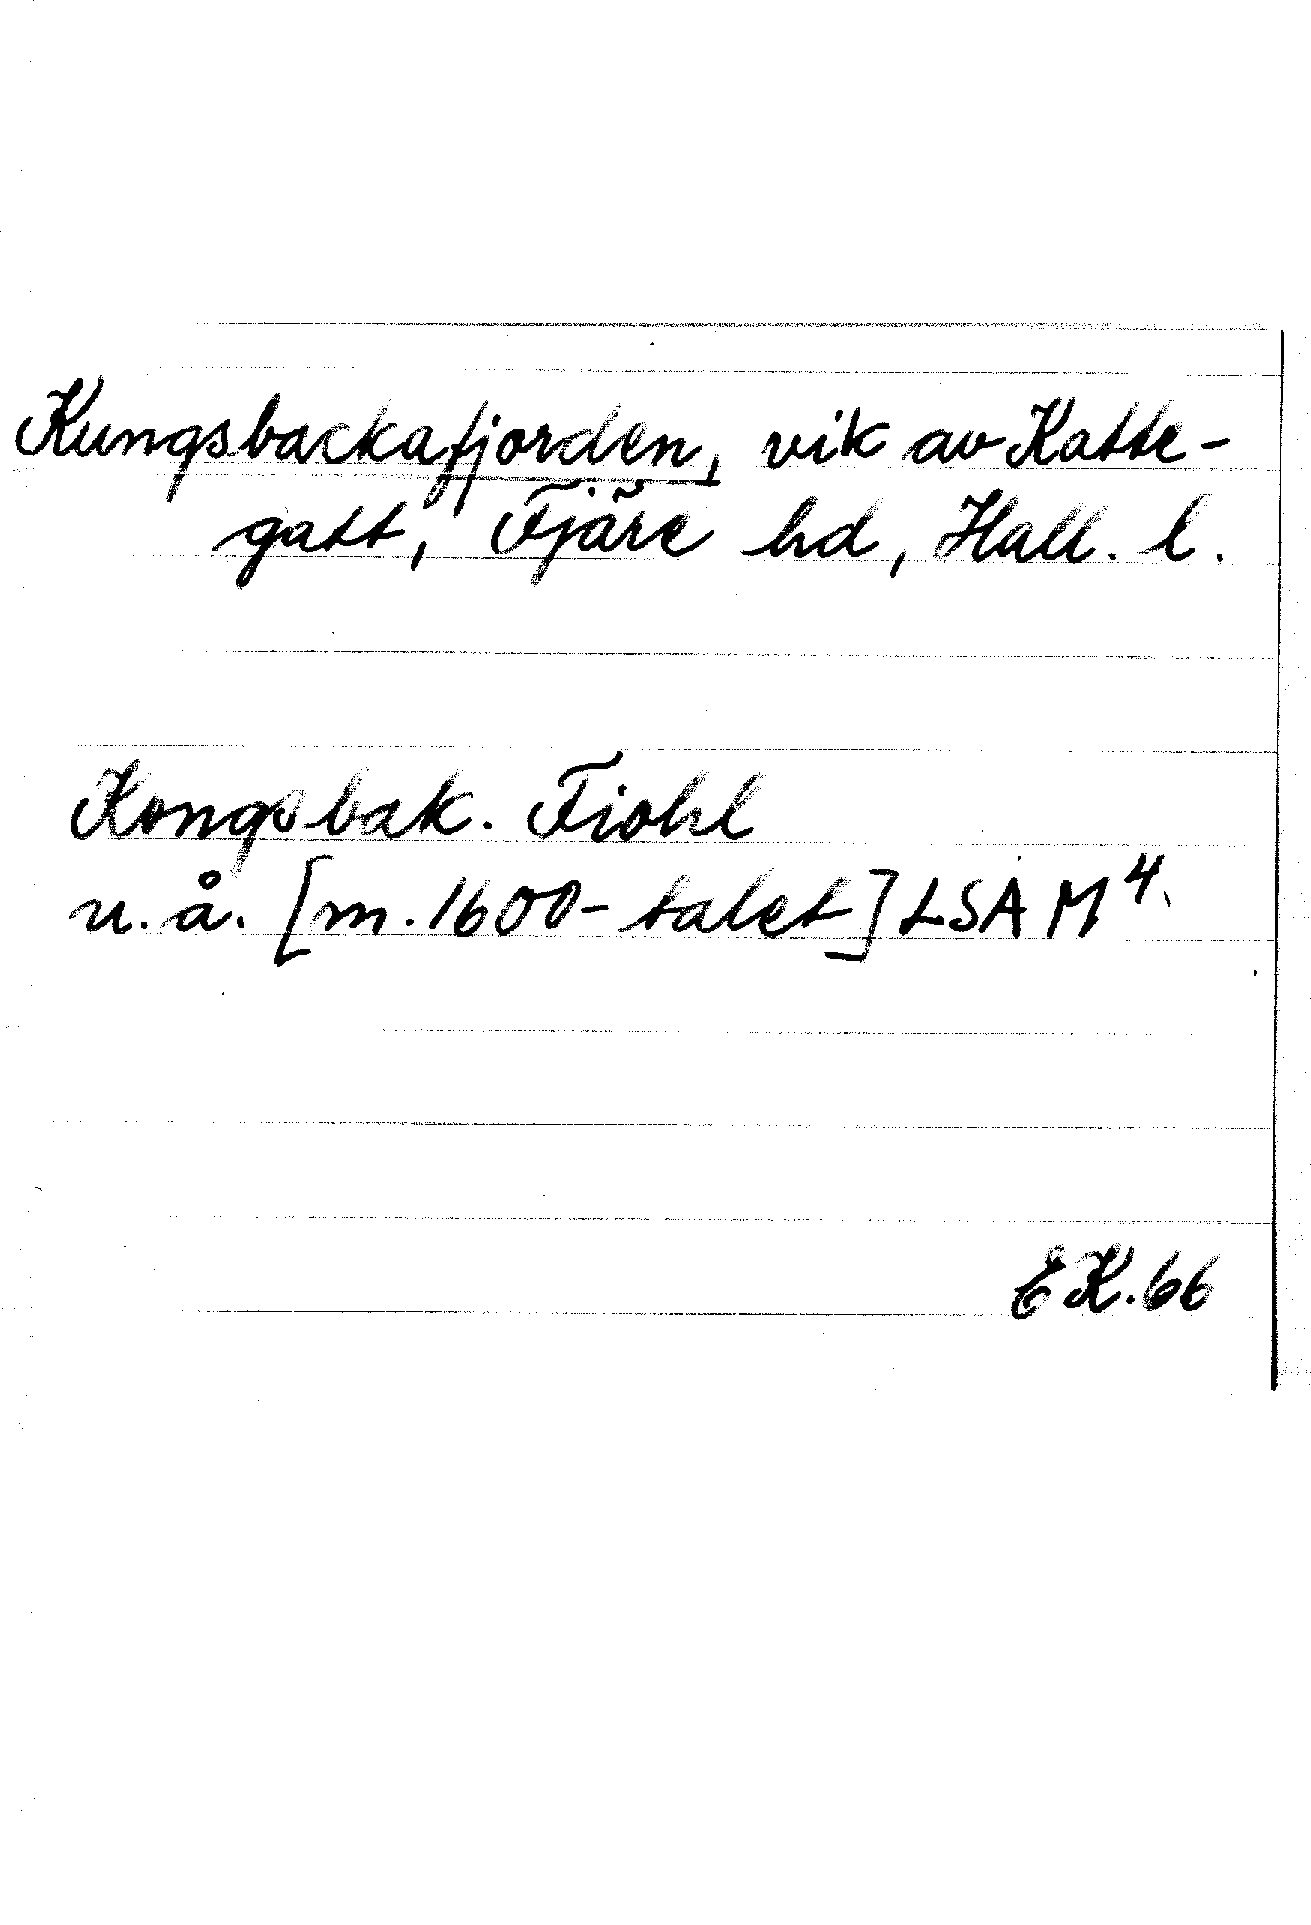 Kungsbackafjorden, vik av Katte-
gatt, Fjäre hd, Hall. l.
Kongsbak. Fiohl
u.å. [m. 1600-talet] LSA M⁴.
EK. 66